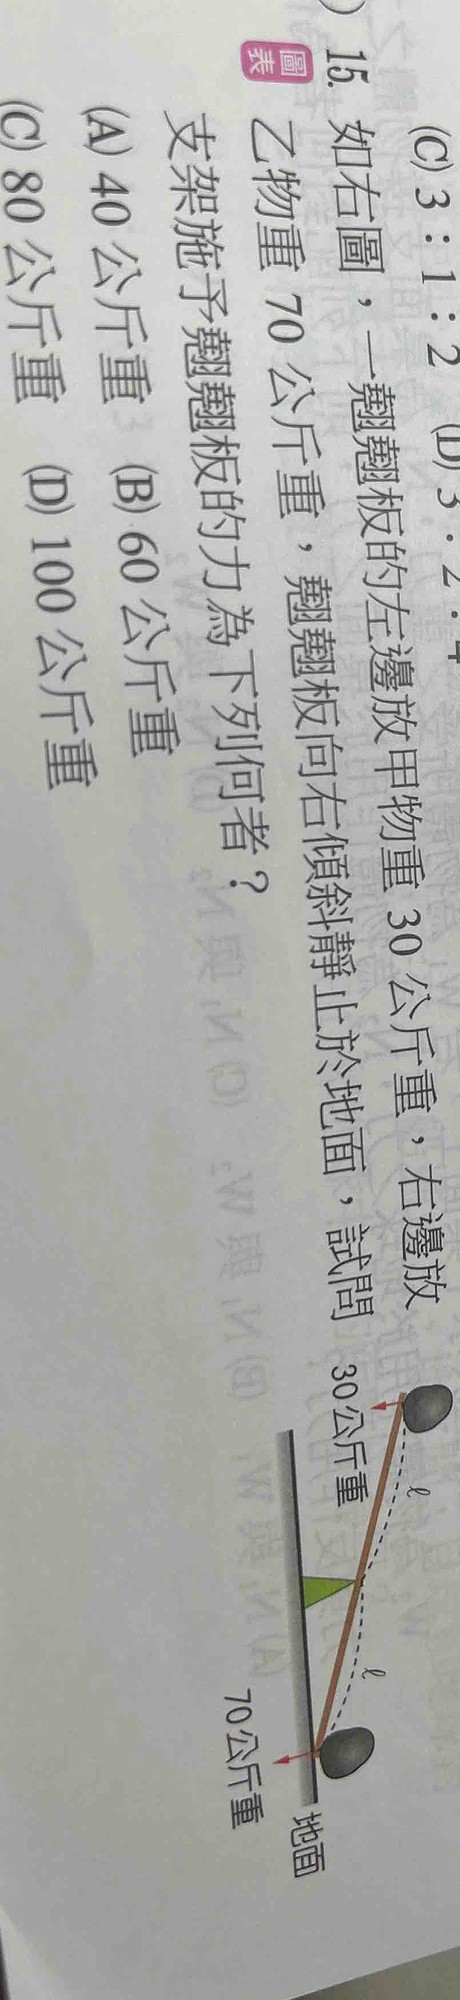 (C) 3：1：2 (D) 3：2：4
) 15. 如右圖，一翹翹板的左邊放甲物重 30 公斤重，右邊放
圖表 乙物重 70 公斤重，翹翹板向右傾斜靜止於地面，試問
支架施予翹翹板的力為下列何者？
(A) 40 公斤重 (B) 60 公斤重
(C) 80 公斤重 (D) 100 公斤重
30公斤重
ℓ
ℓ
70公斤重
地面